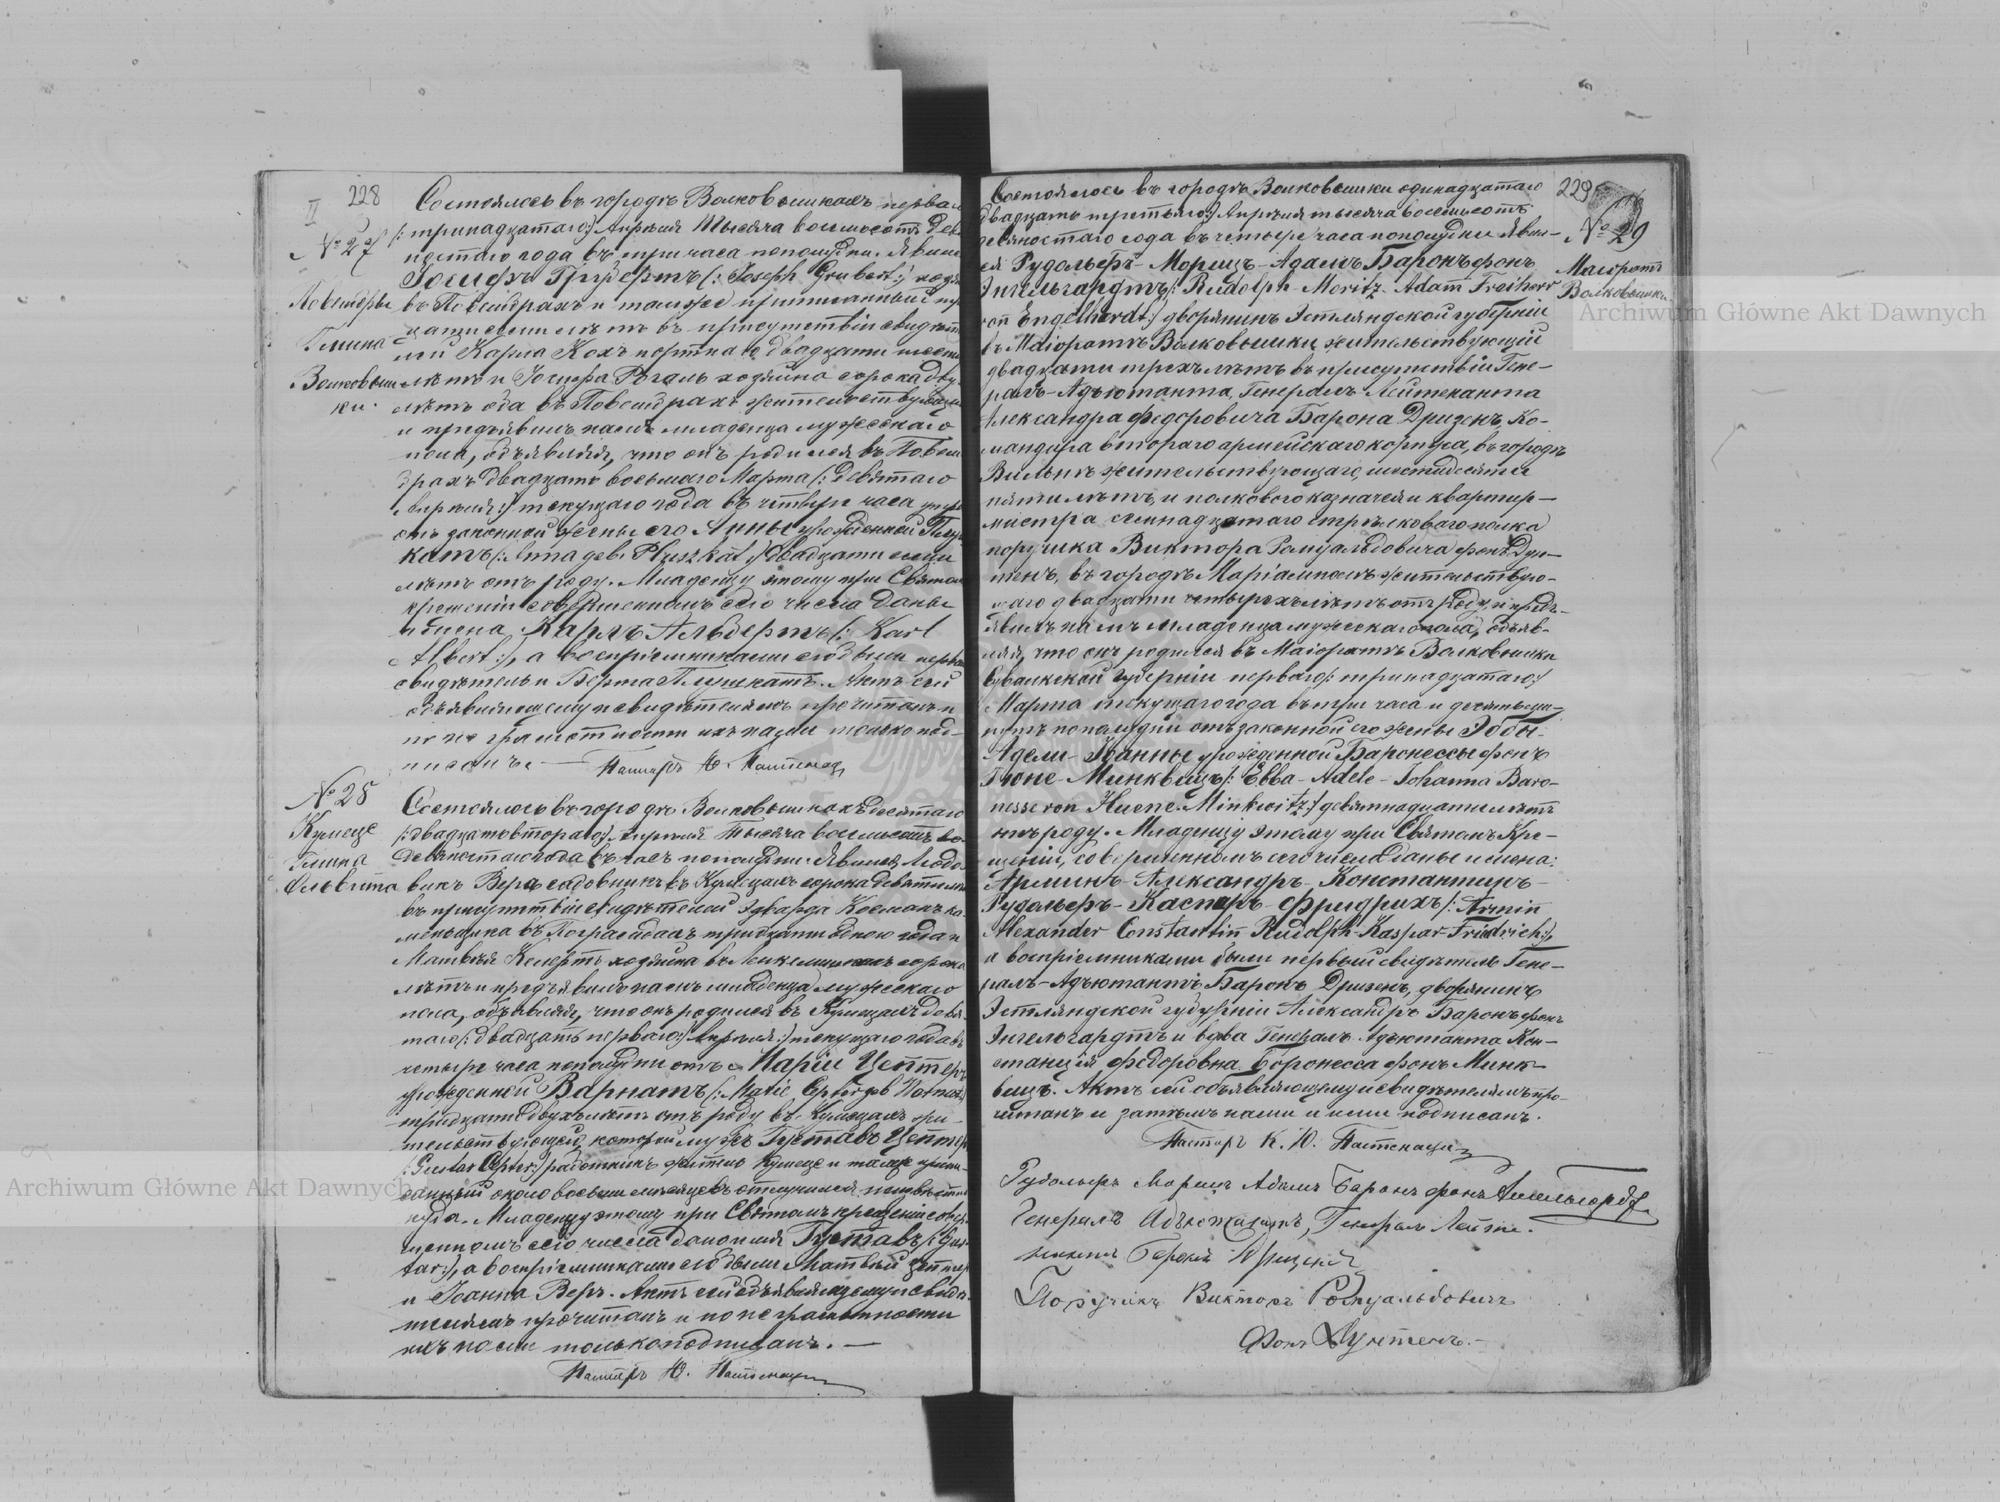 228
II
№ 27
Повендры
Гмина
Волковыш
ки.
Состоялось въ городѣ Волковышкахъ перваго
/: тринадцатаго :/ Апрѣля тысяча восемьсотъ девя
ностаго года въ три часа пополудни. Явился
Іосифъ Грубертъ /: Joseph Grubert :/
въ и тамже приписанный
лѣтъ въ присутствіи свидѣт
лей Карла Кохъ портнаго двадцати шести
лѣтъ и Іосифа Рогаль хозяина сорока дву
лѣтъ оба въ жительствующи
и предъявилъ намъ младенца мужескаго
пола, объявляя, что онъ родился въ Повен
драхъ двадцать восьмаго Марта /: девятаго
Апрѣля :/ текущаго года въ четыре часа утра
отъ законной жены его Анны урожденной Плуш
катъ /: Anna geb. Pluszkat :/ двадцати семи
лѣтъ отъ роду. Младенцу этому при Святомъ
крещеніи совершенномъ сего числа даны
имена Карлъ Альбертъ /: Karl
Albert :/, а воспріемниками его были первый
свидѣтель и Берта Плушкатъ. Актъ сей
объявляющему и свидѣтелямъ прочитанъ и
по неграмотности ихъ нами только под-
писанъ. —
Пасторъ Ю.
№ 28
Кумеце
Гмина
Ольвита
Состоялось въ городѣ Волковышкахъ десятаго
/: двадцать втораго :/ Апрѣля тысяча восемьсотъ
девяностаго года въ часъ пополудни. Явился Людо
викъ Веръ садовникъ въ Кумецахъ сорока девяти лѣтъ
въ присутствіи свидѣтелей Эдварда Косманъ ка
менщика въ тридцати одного года и
Матвѣя хозяина въ сорока
лѣтъ и предъявилъ намъ младенца мужескаго
пола, объявляя, что онъ родился въ Кумецахъ девя
таго /: двадцать перваго :/ Апрѣля :/ текущаго года въ
четыре часа пополудни отъ Маріи Цептеръ
урожденной Варнатъ /: Marie Cepter geb Warnat :/
тридцати двухъ лѣтъ отъ роду въ Кумецахъ жи-
тельствующей, которой мужъ Густавъ Цептеръ
/: Gustav Cepter :/ работникъ житель Кумеце и тамже припи-
санный около восьми мѣсяцевъ отлучился неизвѣстно
куда. Младенцу этому при Святомъ крещеніи совер
шенномъ сего числа дано имя Густавъ /: Gus-
tav :/, а воспріемниками его были Матвѣй Цептеръ
и Іоанна Веръ. Актъ сей объявляющему и свидѣ-
телямъ прочитанъ и по неграмотности
ихъ нами только подписанъ. —
Пасторъ Ю.
229
№ 29
Маіоратъ
Волковышки
Состоялось въ городѣ Волковышки одинадцатаго
/двадцать третьяго :/ Апрѣля тысяча восемьсотъ
девяностаго года въ четыре часа пополудни Явил-
ся Рудольфъ-Морицъ-Адамъ Баронъ фонъ
Энгельгардтъ /: Rudolph-Moritz-Adam Freiherr
von Engelhardt :/ дворянинъ Эстляндской губерніи
въ Маіоратѣ Волковышки жительствующій
двадцати трехъ лѣтъ въ присутствіи Гене-
ралъ-Адъютанта, Генералъ Лейтенанта
Александра Федоровича Барона Дризенъ, Ко-
мандира втораго армейскаго корпуса, въ городѣ
Вильнѣ жительствующаго, шестидесяти
пяти лѣтъ, и полковаго казначея и квартир-
мистра семнадцатаго стрѣлковаго полка
поручика Виктора Ромуальдовича фонъ Дун-
тенъ, въ городѣ Маріамполѣ жительствую-
щаго двадцати четырехъ лѣтъ отъ роду, и предъ-
явилъ намъ младенца мужескаго пола, объяв-
ляя, что онъ родился въ Маіоратѣ Волковышки
Сувалкской Губерніи перваго /: тринадцатаго :/
Марта текущаго года въ три часа и десять ми-
нутъ пополудни отъ законной его жены Эббы-
Адели-Іоанны урожденной Баронессы фонъ
Гюне-Минквицъ /: Ebba-Adele-Johanna Baro-
nesse von Huene-Minkwitz :/ девятнадцати лѣтъ
отъ роду. Младенцу этому при Святомъ Кре-
щеніи, совершенномъ сего числа даны имена:
Арминъ-Александръ-Константинъ-
Рудольфъ-Каспаръ-Фридрихъ /: Armin
Alexander Constantin Rudolph-Kaspar-Friedrich :/,
а воспріемниками были первый свидѣтель Гене-
ралъ-Адъютантъ Баронъ Дризенъ, дворянинъ
Эстляндской губерніи Александръ Баронъ фонъ
Энгельгардтъ и вдова Генералъ Адъютанта Кон-
станція Федоровна Боронесса фонъ Минк-
вицъ. Актъ сей объявляющему и свидѣтелямъ про-
читанъ и затѣмъ нами и ими подписанъ.
Пасторъ К. Ю.
Рудольфъ Морицъ Адамъ Баронъ фонъ Энгельгардтъ
Генералъ Адъютантъ, Генералъ Лейте-
нантъ Баронъ Дризенъ
Поручикъ Викторъ Ромуальдовичъ
Фонъ Дунтенъ. —
Archiwum Główne Akt Dawnych
Archiwum Główne Akt Dawnych